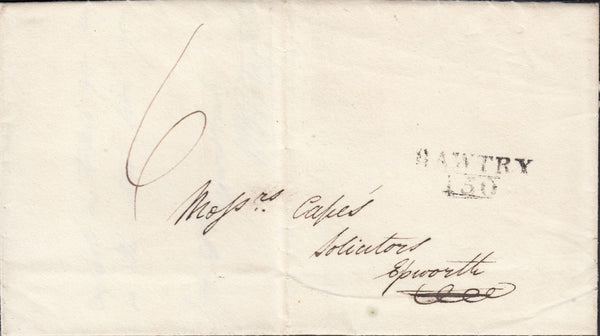 6
BAWTRY
150
Messrs Capes
Solicitors
Epworth